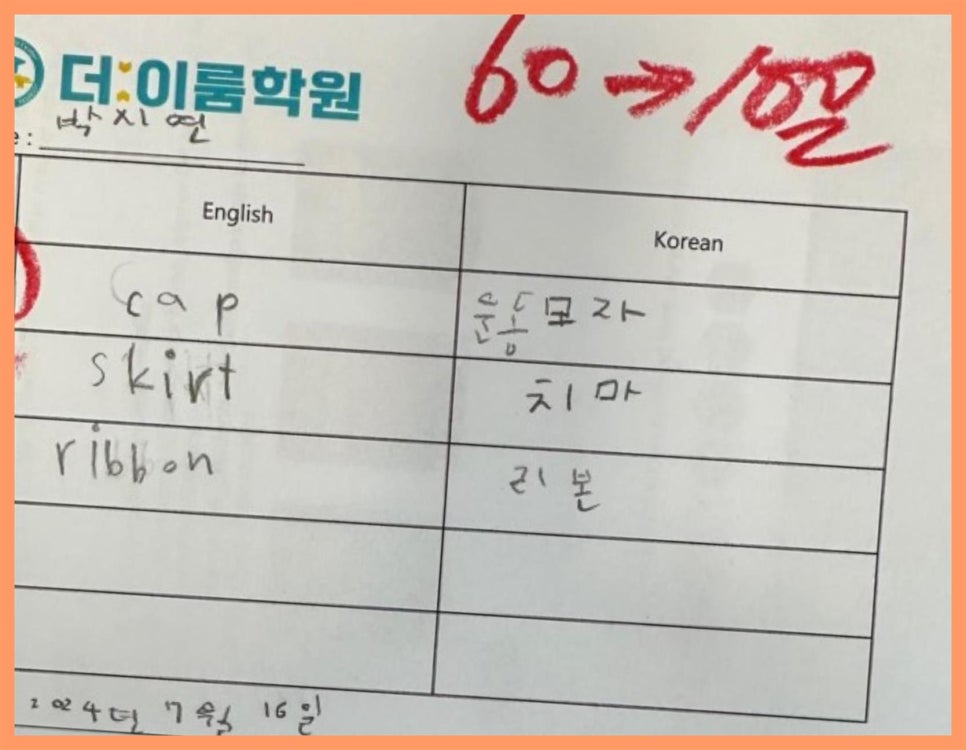 더:이룸학원
60 → 100
e : 박지연
English Korean
cap 운동모자
skirt 치마
ribbon 리본
2024년 7월 16일